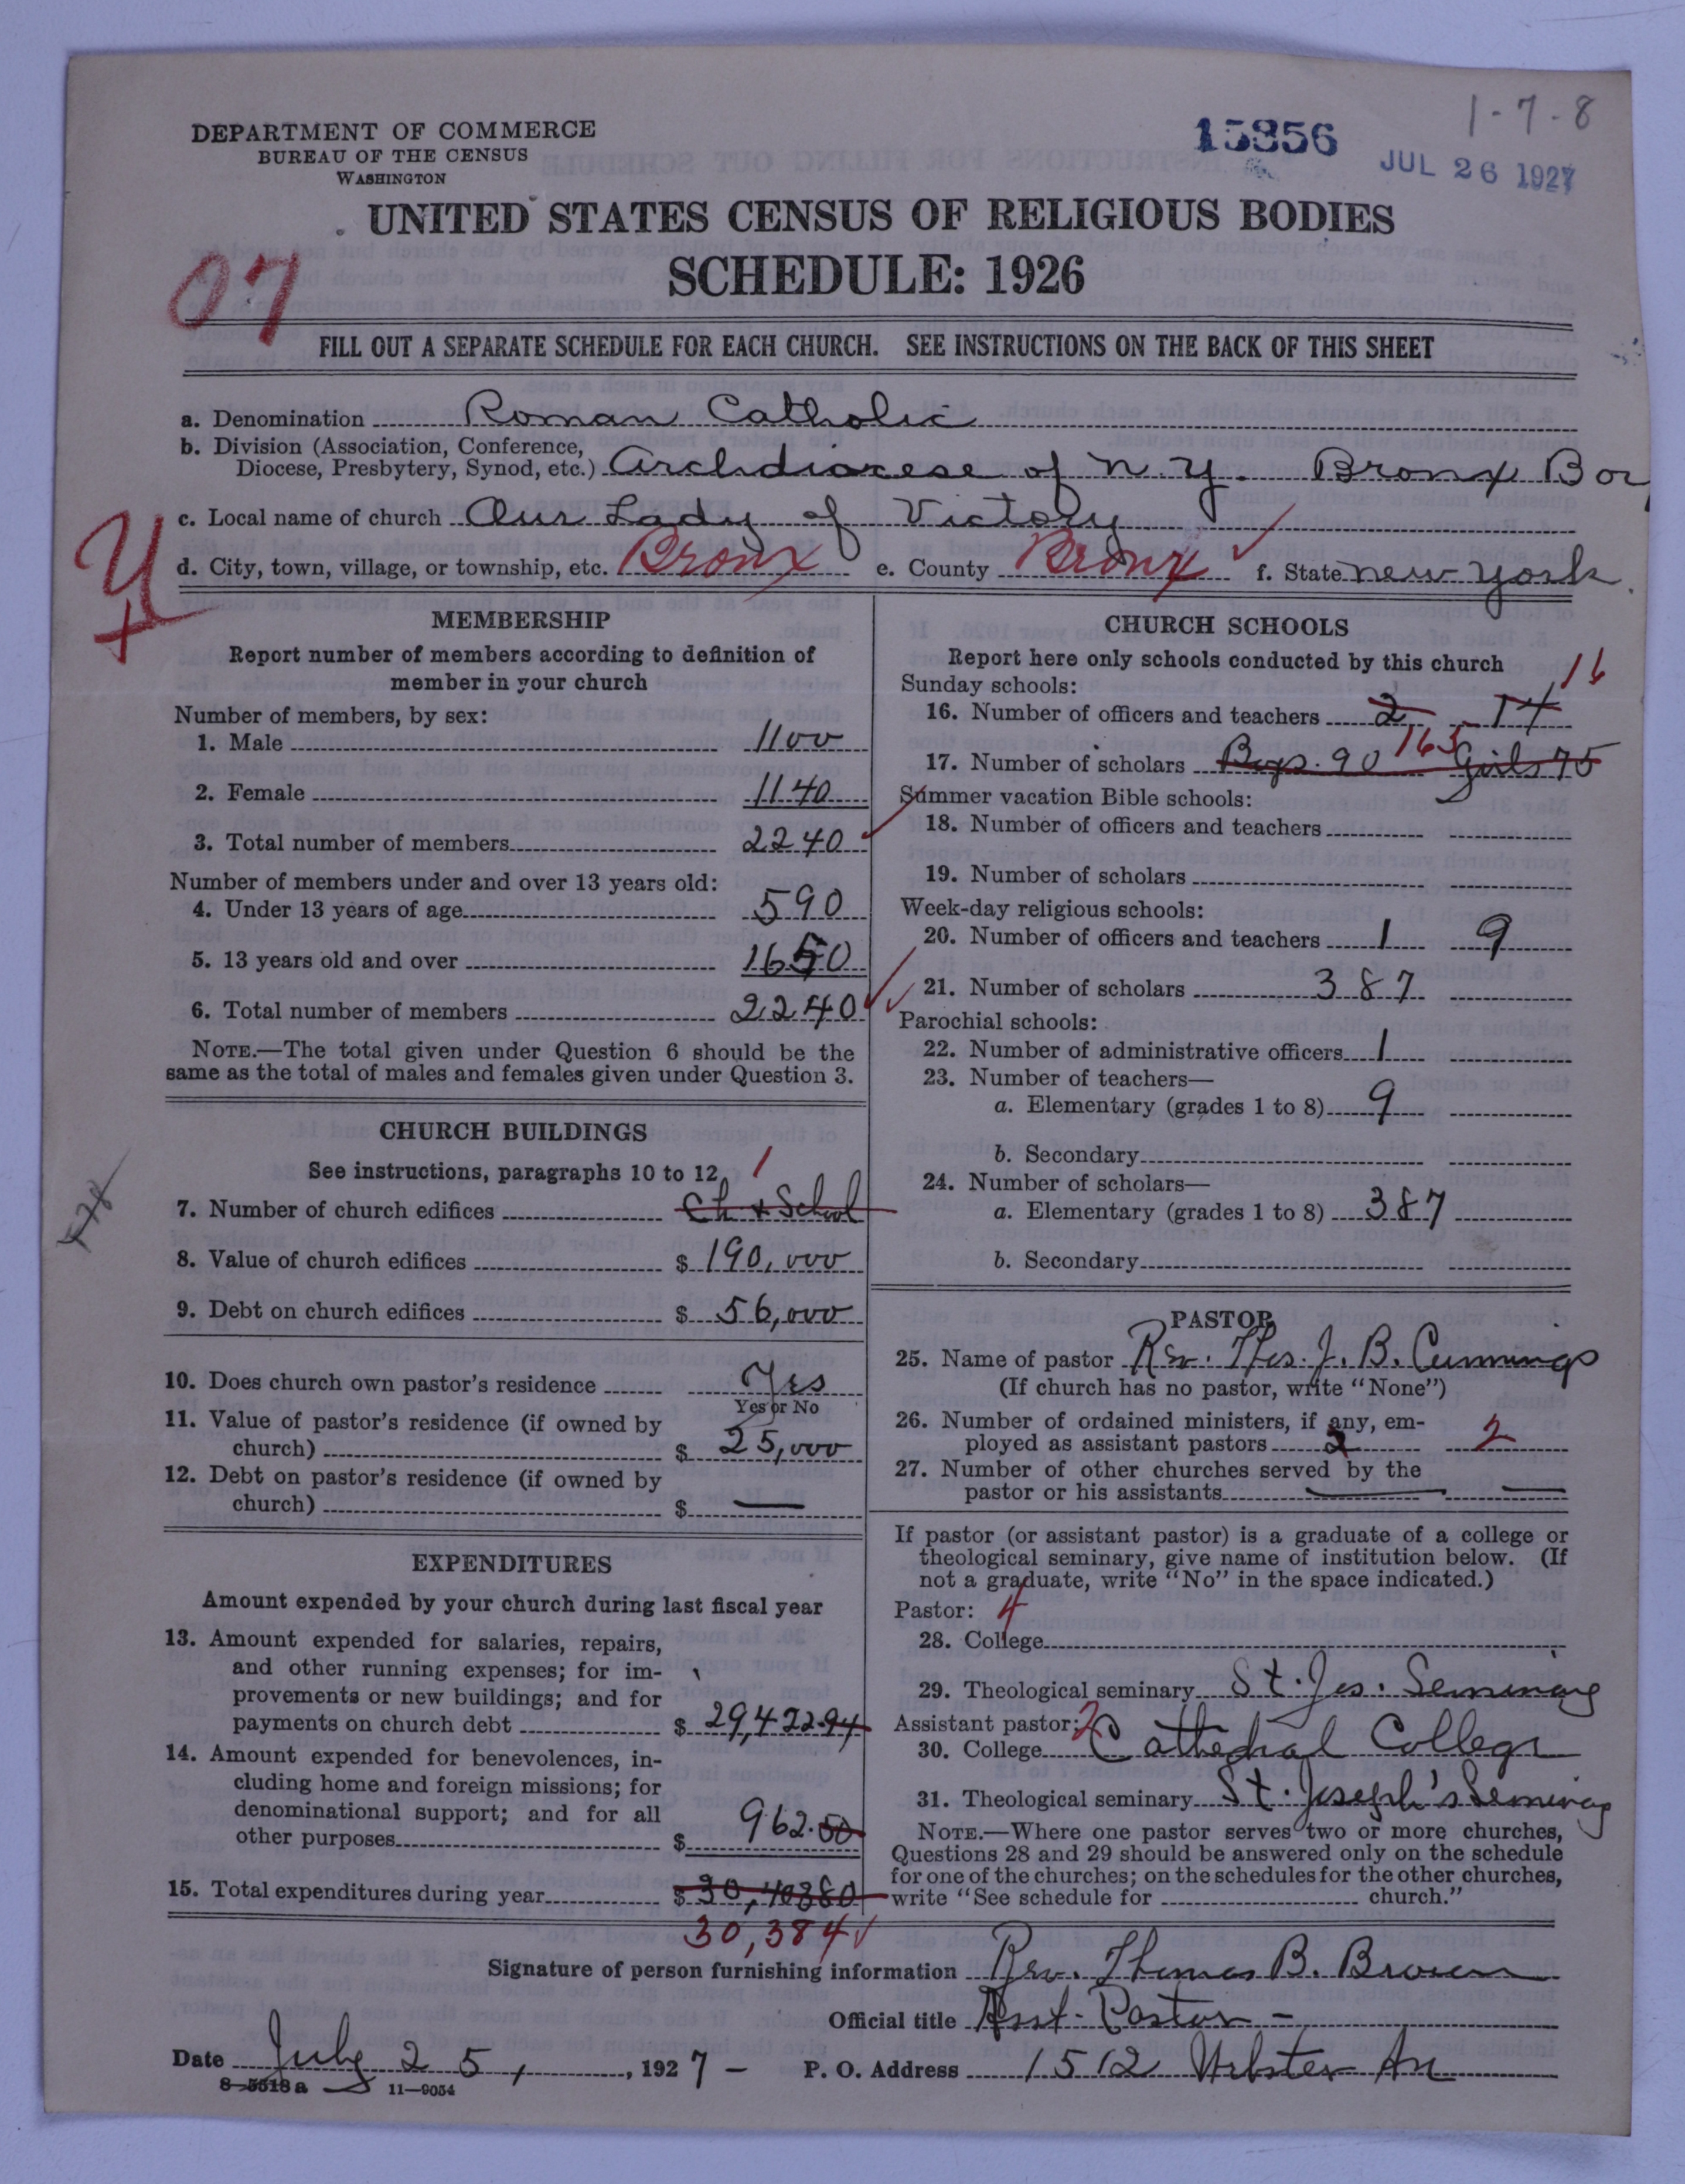 1-7-8
15356
JUL 26 1927
DEPARTMENT OF COMMERCE
BUREAU OF THE CENSUS
WASHINGTON
UNITED STATES CENSUS OF RELIGIOUS BODIES
SCHEDULE: 1926
07
FILL OUT A SEPARATE SCHEDULE FOR EACH CHURCH. SEE INSTRUCTIONS ON THE BACK OF THIS SHEET
a. Denomination Roman Catholic
b. Division (Association, Conference,
Diocese, Presbytery, Synod, etc.) Archdiocese of N.Y. Bronx Bor
c. Local name of church Our Lady of Victory
d. City, town, village, or township, etc. Bronx e. County Bronx f. State New York.
MEMBERSHIP
Report number of members according to definition of
member in your church
Number of members, by sex:
1. Male 1100
2. Female 1140
3. Total number of members 2240
Number of members under and over 13 years old:
4. Under 13 years of age 590
5. 13 years old and over 1650
6. Total number of members 2240
NOTE.—The total given under Question 6 should be the
same as the total of males and females given under Question 3.
CHURCH BUILDINGS
See instructions, paragraphs 10 to 12
1
7. Number of church edifices Ch + School
8. Value of church edifices $ 190,000
9. Debt on church edifices $ 56,000
10. Does church own pastor's residence Yes
Yes or No
11. Value of pastor's residence (if owned by
church) $ 25,000
12. Debt on pastor's residence (if owned by
church) $ —
EXPENDITURES
Amount expended by your church during last fiscal year
13. Amount expended for salaries, repairs,
and other running expenses; for im-
provements or new buildings; and for
payments on church debt $ 29,422.94
14. Amount expended for benevolences, in-
cluding home and foreign missions; for
denominational support; and for all
other purposes $ 962.50
15. Total expenditures during year $ 30,40380
30,384
CHURCH SCHOOLS
Report here only schools conducted by this church
Sunday schools: 16
16. Number of officers and teachers 2 - 14
17. Number of scholars Boys. 90 165 Girls 75
Summer vacation Bible schools:
18. Number of officers and teachers
19. Number of scholars
Week-day religious schools:
20. Number of officers and teachers 1 9
21. Number of scholars 387
Parochial schools:
22. Number of administrative officers 1
23. Number of teachers—
a. Elementary (grades 1 to 8) 9
b. Secondary
24. Number of scholars—
a. Elementary (grades 1 to 8) 387
b. Secondary
PASTOR
25. Name of pastor Rev. Thos. J. B. Cummings
(If church has no pastor, write "None")
26. Number of ordained ministers, if any, em-
ployed as assistant pastors 2 2
27. Number of other churches served by the
pastor or his assistants — —
If pastor (or assistant pastor) is a graduate of a college or
theological seminary, give name of institution below. (If
not a graduate, write "No" in the space indicated.)
Pastor: 4
28. College
29. Theological seminary St. Jos. Seminary
Assistant pastor: 2
30. College Cathedral College
31. Theological seminary St. Joseph's Seminary
NOTE.—Where one pastor serves two or more churches,
Questions 28 and 29 should be answered only on the schedule
for one of the churches; on the schedules for the other churches,
write "See schedule for church."
Signature of person furnishing information Rev. Thomas B. Brown
Official title Asst. Pastor -
Date July 25, , 1927 - P. O. Address 1512 Webster Av
8-5518a 11-9054